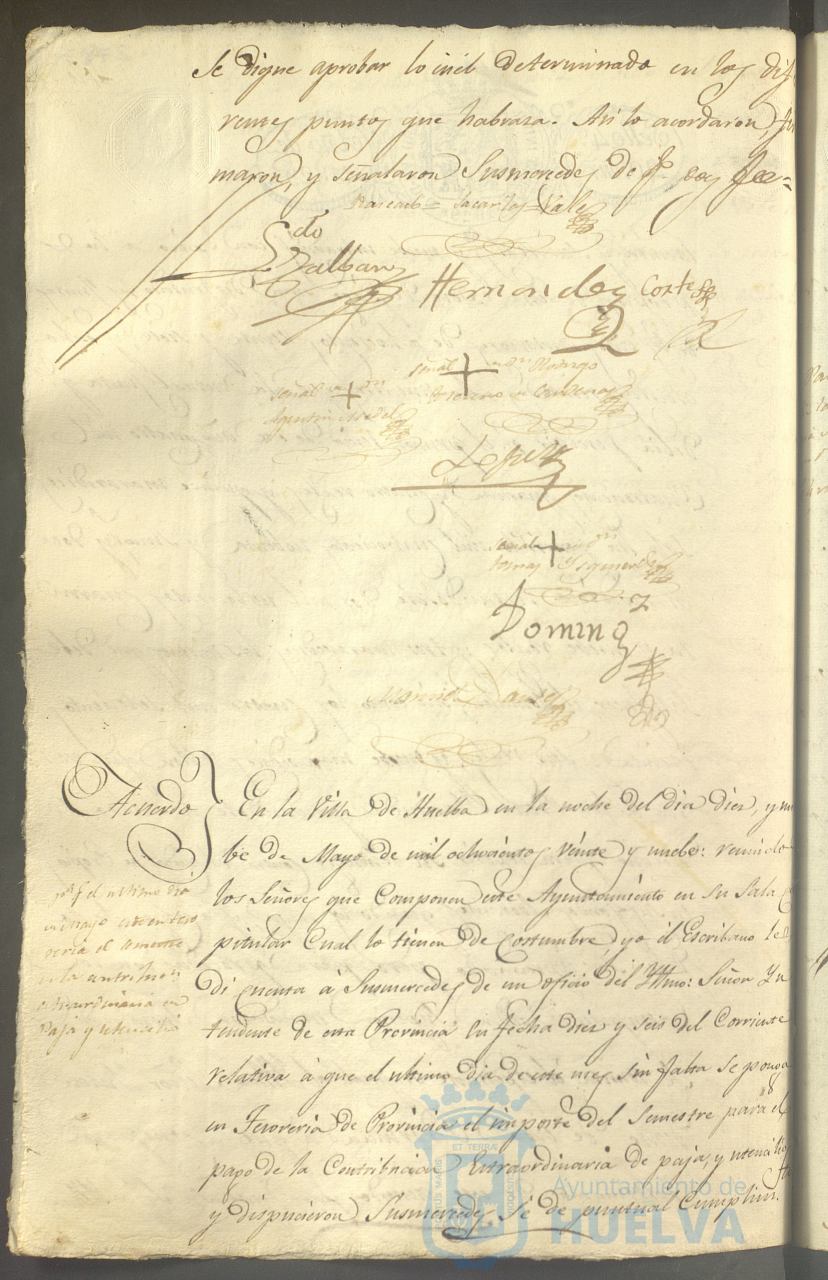 Se digne aprobar lo en el determinado en los dife
rentes puntos que habraza. Asi lo acordaron, fir
maron, y señalaron Susmercedes de q.e doy fee=
Vale
Ldo
Hernandez Cortes
señal + de Dn Domingo
señal + de Dn
Agustin
Lopez
señal + de Dn
Tomas Izquierdo
Doming
Manuel
Acuerdo
En la Villa de Huelba en la noche del dia diez, y nu
be de Mayo de mil ochocientos veinte y nuebe: reunido
los Señores que componen este Ayuntamiento en su Sala Ca
pitular cual lo tienen de costumbre, yo el Escribano les
di cuenta à Susmercedes de un oficio del Yltmo: Señor Yn
tendente de esta Provincia su fecha diez y seis del corriente
relativa à que el ultimo dia de este mes sin falta se ponga
en Tesoreria de Provincia el importe del semestre para el
pago de la Contribucion Extraordinaria de paja, y utencilios
y dispucieron Susmercedes se de puntual cumplim.to
el ultimo dia
en Mayo este en teso
reria el semestre
de la contribucion
extraordinaria de
Paja y utencilio
Ayuntamiento de
HUELVA